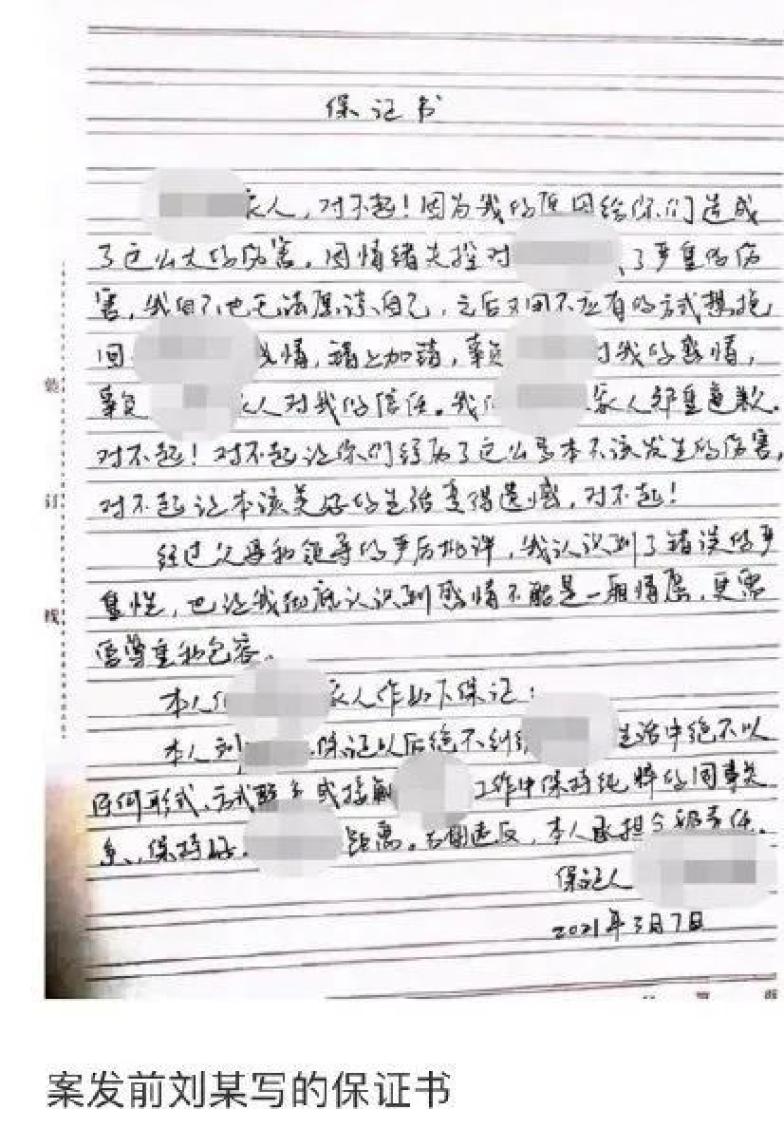 保证书
家人，对不起！因为我的原因给你们造成
了这么大的伤害。因情绪失控对 了严重的伤
害，我自己也无法原谅自己，之后又因不应有的方式想挽
回 感情，错上加错，辜负 对我的感情，
辜负 家人对我的信任。我 家人郑重道歉。
对不起！对不起让你们经历了这么多本不该发生的伤害，
对不起让本该美好的生活变得遗憾，对不起！
经过父母和领导的严厉批评，我认识到了错误的严
重性，也让我彻底认识到感情不能是一厢情愿，更需
要尊重和包容。
本人 家人作如下保证：
本人刘 保证以后绝不纠缠 生活中绝不以
任何形式、方式联系或接触 工作中保持纯粹的同事关
系、保持好 距离。右侧违反，本人承担全部责任。
保证人
2021年3月7日
装
订
线
案发前刘某写的保证书